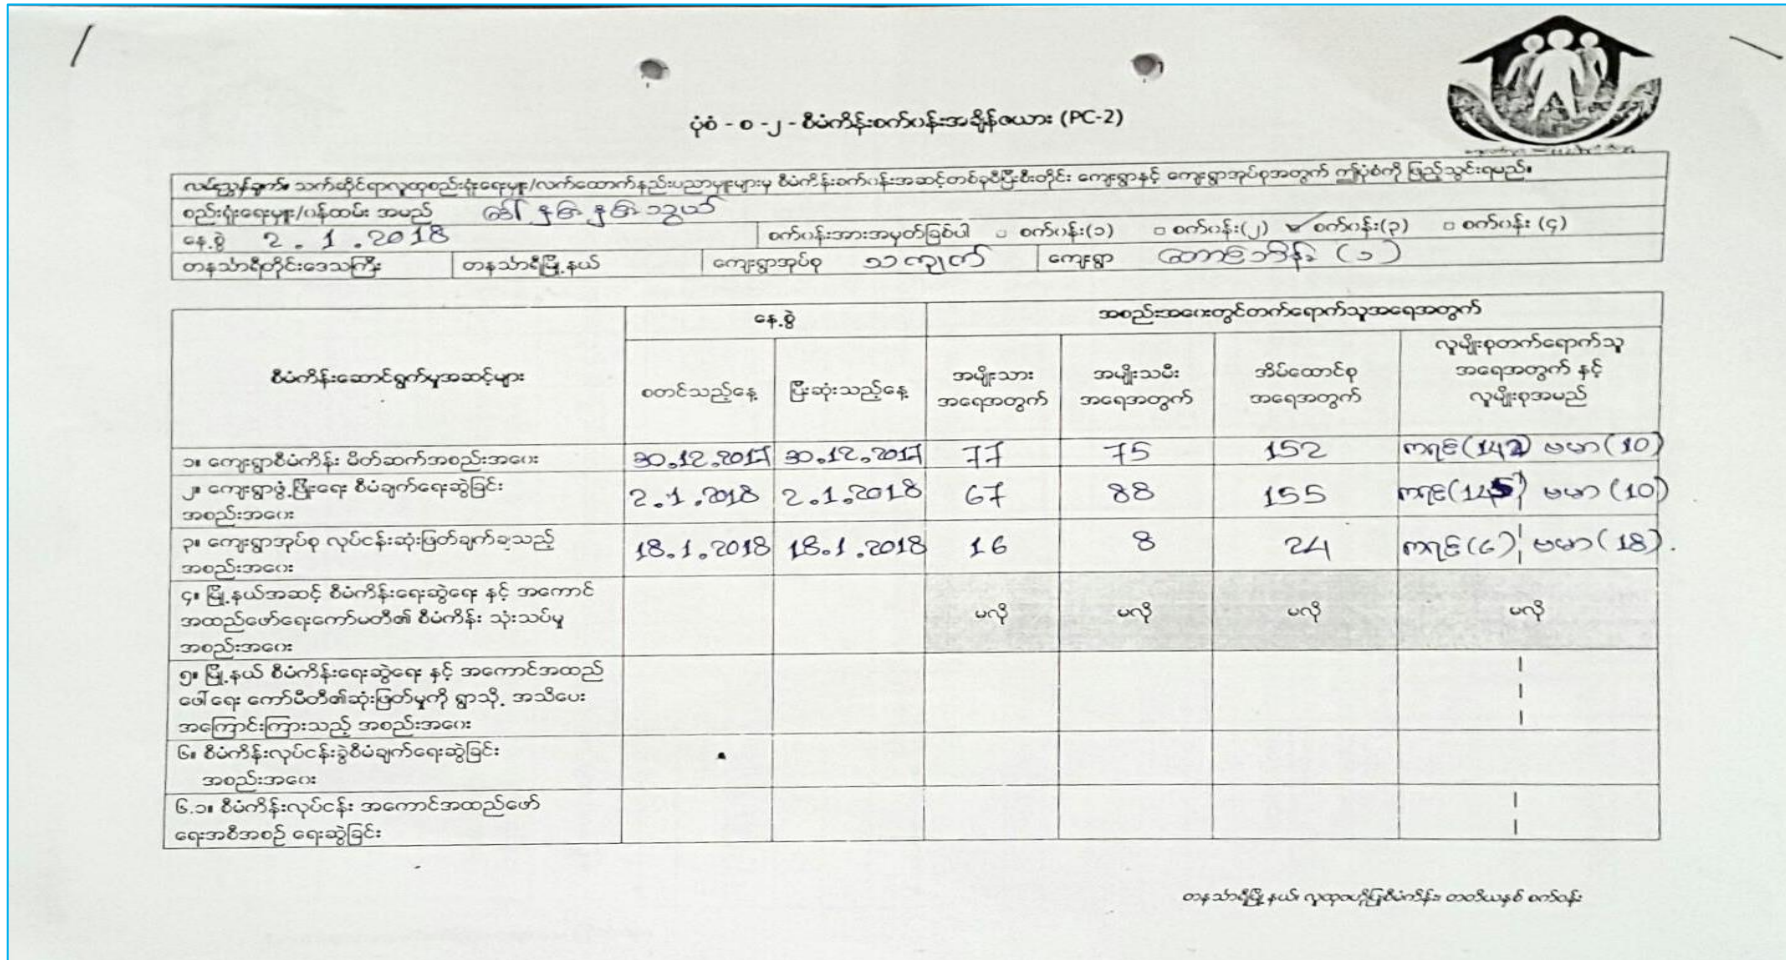 ပုံစံ - စ -၂ - စီမံကိန်းစက်ဝန်းအချိန်ဇယား (PC-2)
လမ်းညွှန်ချက်။ သက်ဆိုင်ရာလူထုစည်းရုံးရေးမှူး/လက်ထောက်နည်းပညာမှူးများမှ စီမံကိန်းစက်ဝန်းအဆင့်တစ်ခုစီပြီးစီးတိုင်း ကျေးရွာနှင့် ကျေးရွာအုပ်စုအတွက် ဤပုံစံကို ဖြည့်သွင်းရမည်။
စည်းရုံးရေးမှူး/ဝန်ထမ်း အမည် ဒေါ်
နေ့စွဲ 2.1.2018 စက်ဝန်းအားအမှတ်ခြစ်ပါ □ စက်ဝန်း(၁) □ စက်ဝန်း(၂) ✓ စက်ဝန်း(၃) □ စက်ဝန်း (၄)
တနင်္သာရီတိုင်းဒေသကြီး တနင်္သာရီမြို့နယ် ကျေးရွာအုပ်စု သာကျွတ် ကျေးရွာ (၁)
စီမံကိန်းဆောင်ရွက်မှုအဆင့်များ
နေ့စွဲ
အစည်းအဝေးတွင်တက်ရောက်သူအရေအတွက်
စတင်သည့်နေ့
ပြီးဆုံးသည့်နေ့
အမျိုးသား
အရေအတွက်
အမျိုးသမီး
အရေအတွက်
အိမ်ထောင်စု
အရေအတွက်
လူမျိုးစုတက်ရောက်သူ
အရေအတွက် နှင့်
လူမျိုးစုအမည်
၁။ ကျေးရွာစီမံကိန်း မိတ်ဆက်အစည်းအဝေး 30.12.2017 30.12.2017 77 75 152 ကရင်(142) ဗမာ(10)
၂။ ကျေးရွာဖွံ့ဖြိုးရေး စီမံချက်ရေးဆွဲခြင်း
အစည်းအဝေး 2.1.2018 2.1.2018 67 88 155 ကရင်(145) ဗမာ(10)
၃။ ကျေးရွာအုပ်စု လုပ်ငန်းဆုံးဖြတ်ချက်ချသည့်
အစည်းအဝေး 18.1.2018 18.1.2018 16 8 24 ကရင်(6) ဗမာ(18).
၄။ မြို့နယ်အဆင့် စီမံကိန်းရေးဆွဲရေး နှင့် အကောင်
အထည်ဖော်ရေးကော်မတီ၏ စီမံကိန်း သုံးသပ်မှု
အစည်းအဝေး မလို မလို မလို မလို
၅။ မြို့နယ် စီမံကိန်းရေးဆွဲရေး နှင့် အကောင်အထည်
ဖေါ်ရေး ကော်မီတီ၏ဆုံးဖြတ်မှုကို ရွာသို့ အသိပေး
အကြောင်းကြားသည့် အစည်းအဝေး
၆။ စီမံကိန်းလုပ်ငန်းခွဲစီမံချက်ရေးဆွဲခြင်း
အစည်းအဝေး
၆.၁။ စီမံကိန်းလုပ်ငန်း အကောင်အထည်ဖော်
ရေးအစီအစဉ် ရေးဆွဲခြင်း
တနင်္သာရီမြို့နယ်၊ လူထုဗဟိုပြုစီမံကိန်း၊ တတိယနှစ် စက်ဝန်း